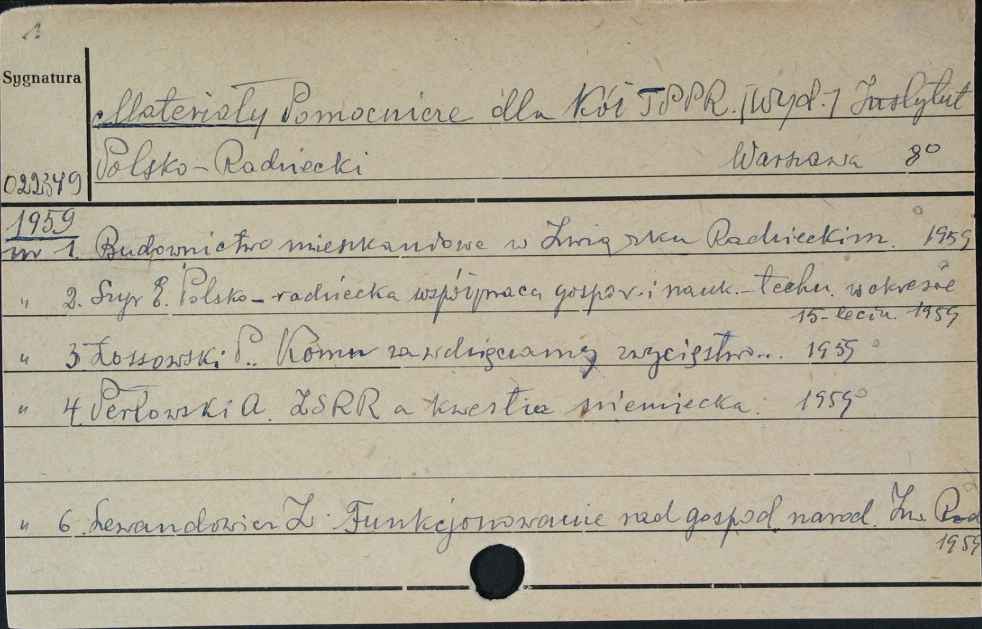 1
Sygnatura
Materiały Pomocnicze dla Kół TPPR. [Wyd.] Instytut
Polsko-Radziecki Warszawa 8°
022349
1959
nr 1. Budownictwo mieszkaniowe w Związku Radzieckim. 1959
" 2. Szyr E. Polsko-radziecka współpraca gospod. i nauk.-techn. w okresie
15-lecia. 1959
" 3 Łossowski P.. Komu zawdzięczamy zwycięstwo... 1959
" 4. Perłowski A. ZSRR a kwestia niemiecka. 1959
" 6. Lewandowicz Z. Funkcjonowanie rad gospod. narod. Zw. Rad
1959